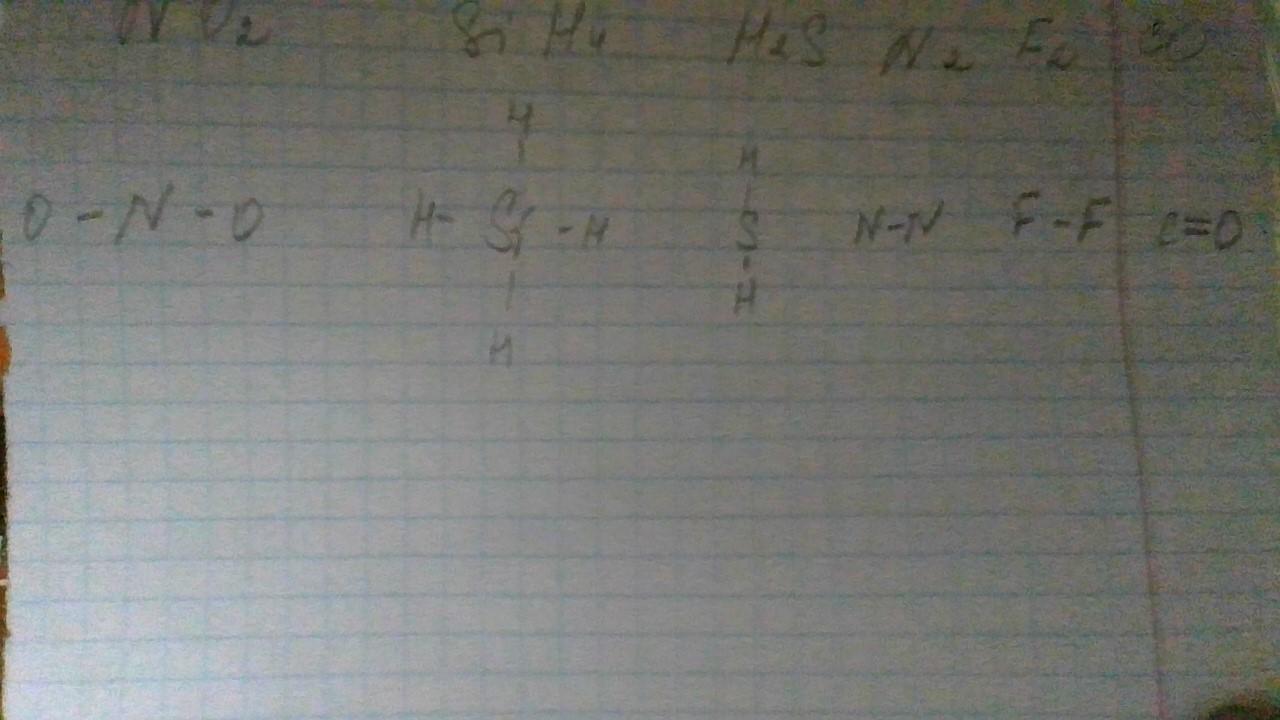 NO2 SiH4 H2S N2 F2 CO
H H
O - N - O H - Si - H S N-N F-F C=O
H
H